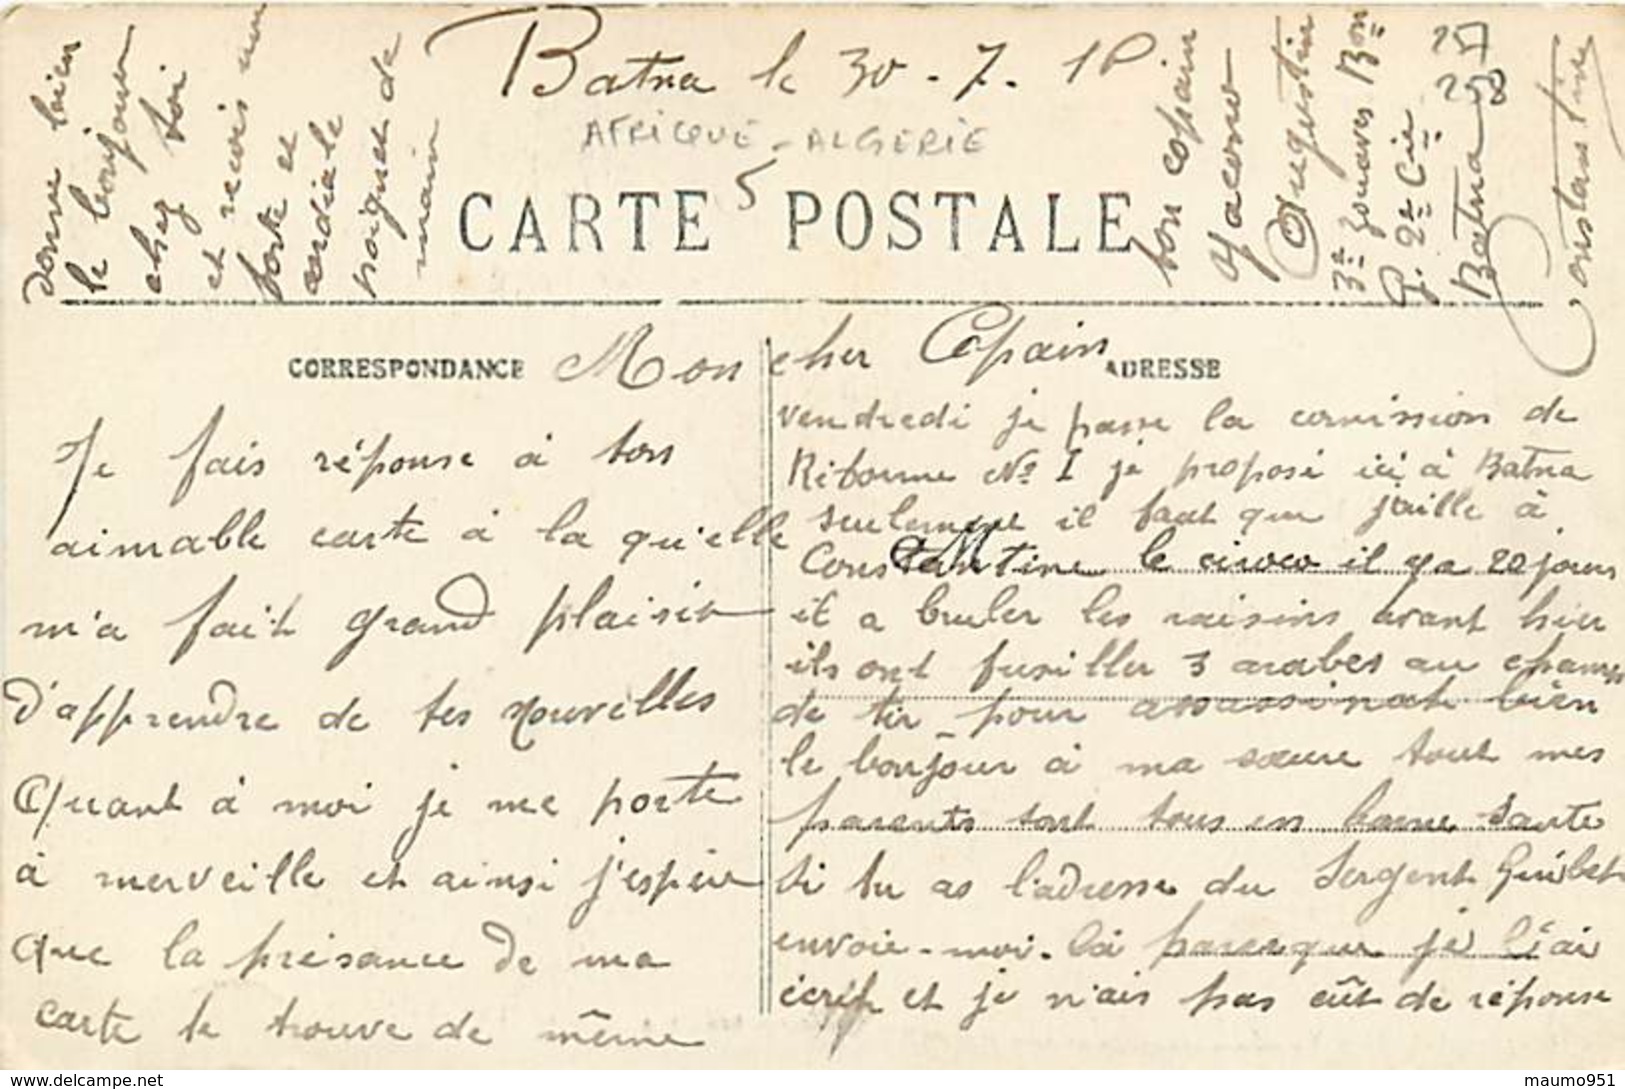 Batna le 30 - 7 - 18
AFRIQUE - ALGERIE
5
CARTE POSTALE
CORRESPONDANCE
ADRESSE
Mon cher Copain
Je fais réponse à ton
aimable carte à la qu'elle
m'a fait grand plaisir
d'apprendre de tes nouvelles
Quant à moi je me porte
à merveille et ainsi j'espère
que la présance de ma
carte te trouve de même
vendredi je passe la comission de
Riforme No I je proposé ici à Batna
seulement il faut que j'aille à
Constantine le ciroco il y a 20 jours
it a bruler les raisins avant hier
ils ont fusiller 3 arabes au champs
de tir - pour assassinat bien
le bonjour à ma sœure tout mes
parents sont tous en bonne sante
si tu as l'adresse du Sergent Guibet
envoie-moi-la parceque je l'ai
écrit et je n'ais pas eût de réponse
donne bien
le bonjour
chez toi
et recois une
forte et
cordiale
poignee de
main
ton copain
Yacono
Augustin
3e zouaves Bon
G. 2e Cie
Batna
Constantine
maumo951